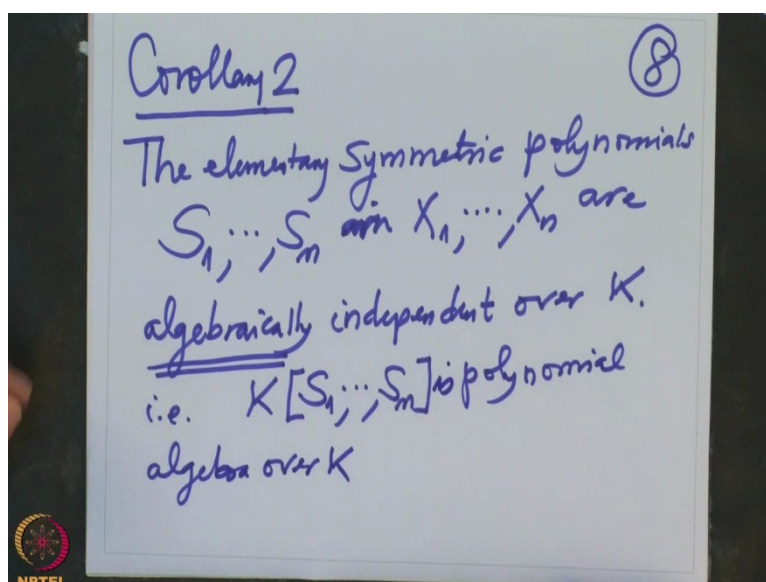 Corollary 2
8
The elementary symmetric polynomials
S₁, ..., Sₙ in X₁, ..., Xₙ are
algebraically independent over K.
i.e. K[S₁, ..., Sₙ] is polynomial
algebra over K
NPTEL